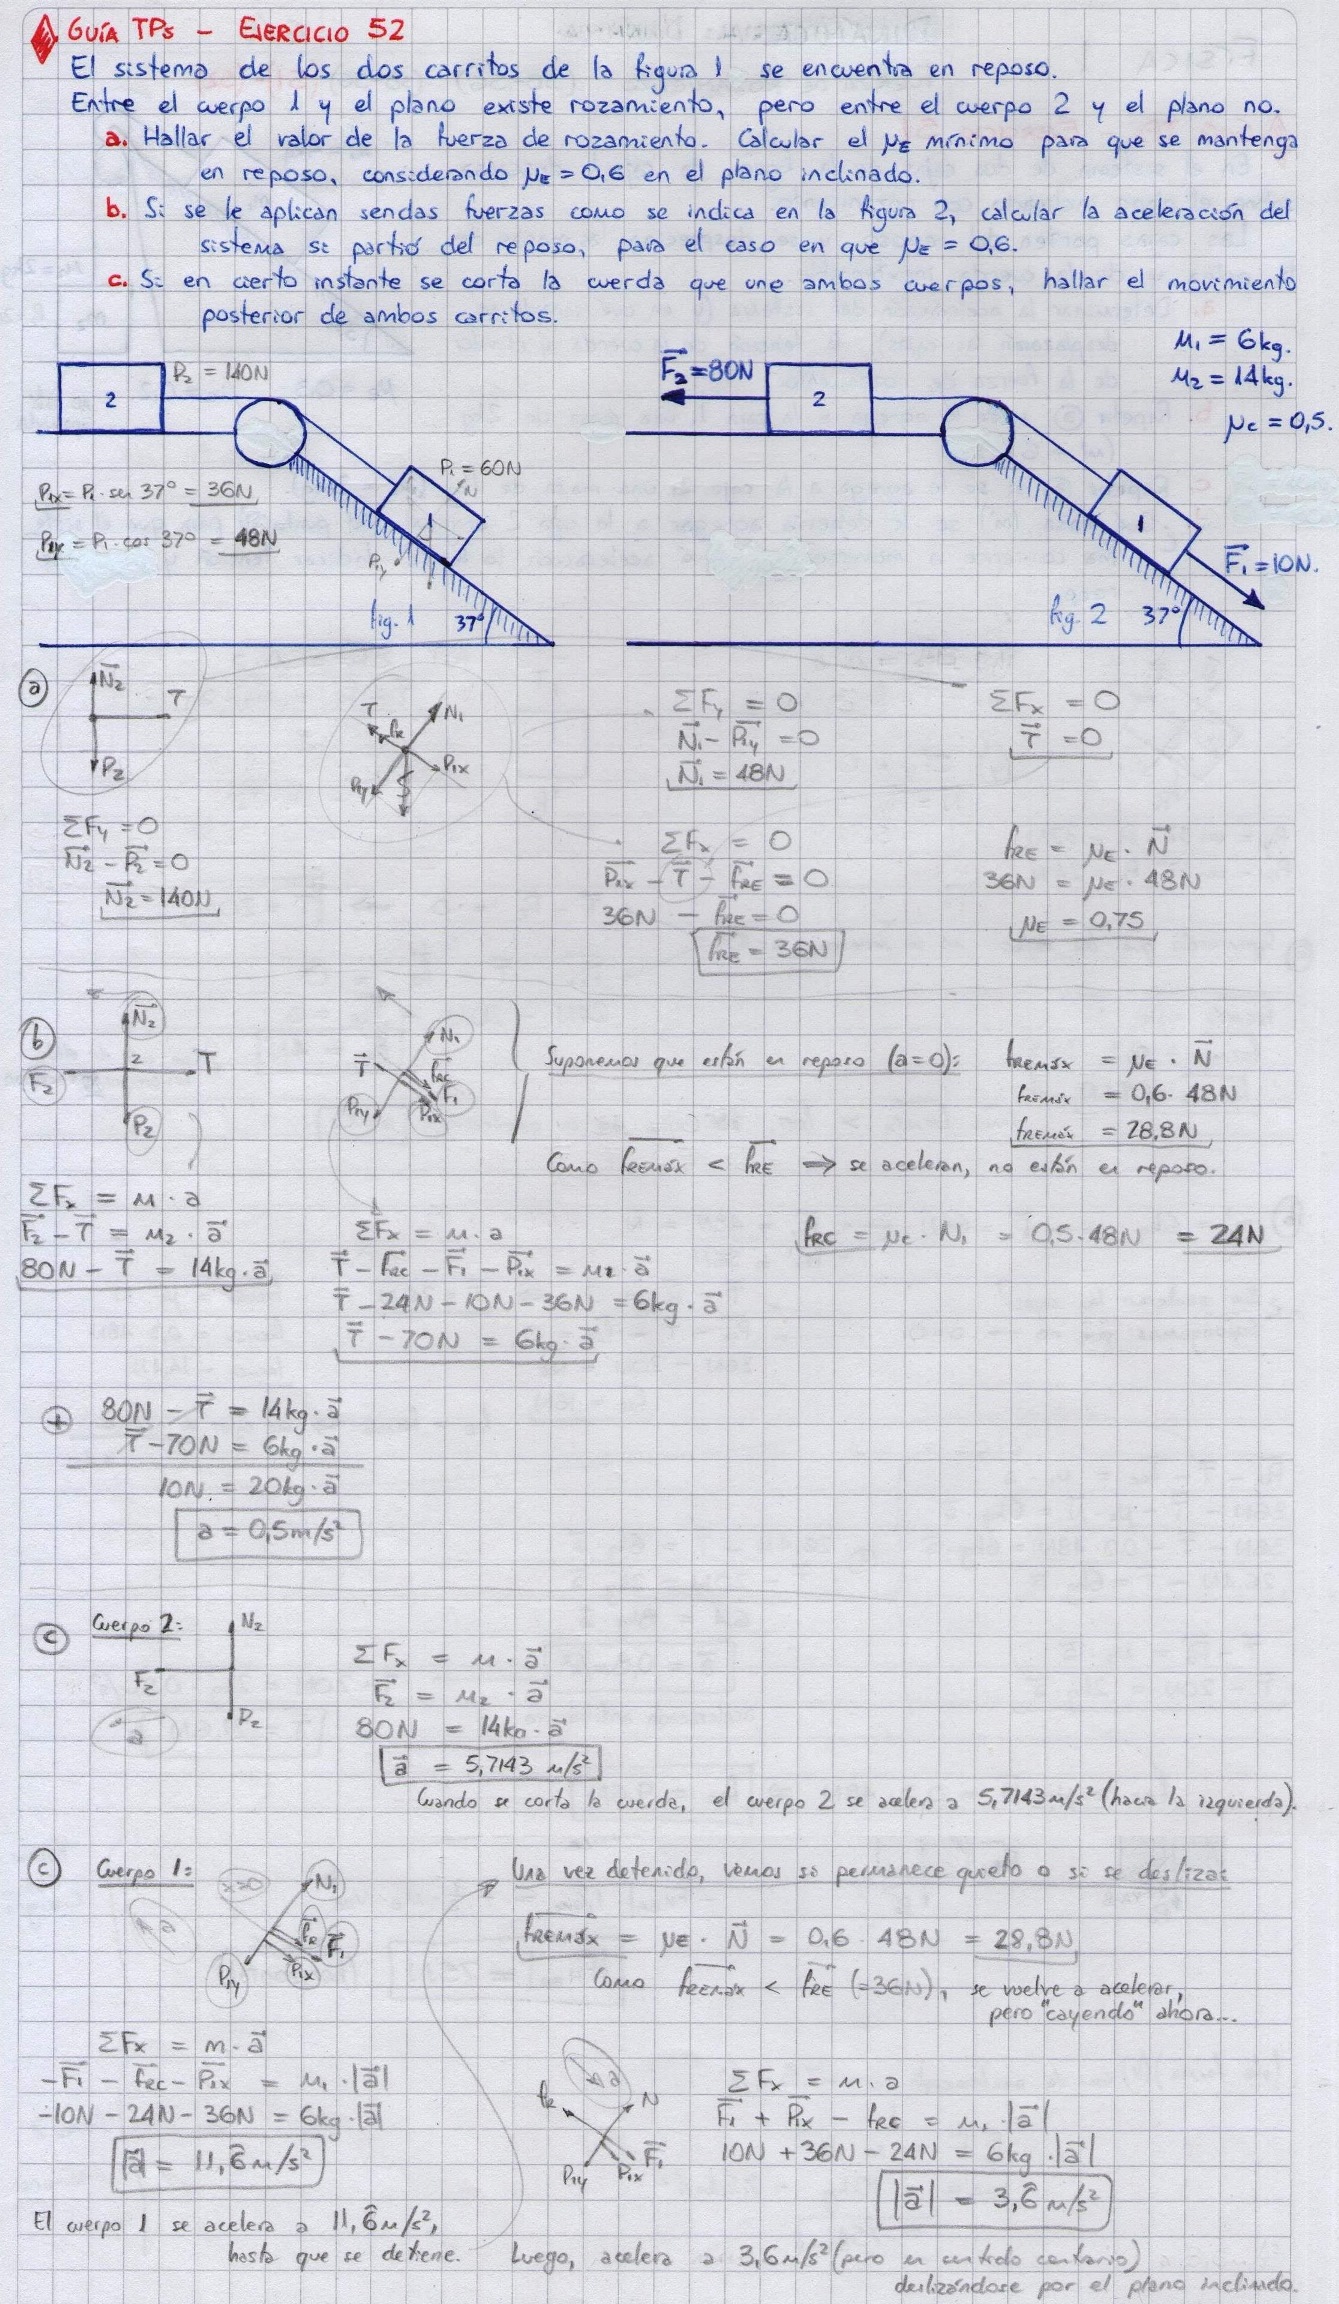 GUÍA TPs - EJERCICIO 52
El sistema de los dos carritos de la figura 1 se encuentra en reposo.
Entre el cuerpo 1 y el plano existe rozamiento, pero entre el cuerpo 2 y el plano no.
a. Hallar el valor de la fuerza de rozamiento. Calcular el μE mínimo para que se mantenga
en reposo, considerando μE = 0,6 en el plano inclinado.
b. Si se le aplican sendas fuerzas como se indica en la figura 2, calcular la aceleración del
sistema si partió del reposo, para el caso en que μE = 0,6.
c. Si en cierto instante se corta la cuerda que une ambos cuerpos, hallar el movimiento
posterior de ambos carritos.
M1 = 6kg.
M2 = 14kg.
μc = 0,5.
2
P2 = 140N
P1 = 60N
N
1
P1y
P1x = P1 · sen 37° = 36N
P1y = P1 · cos 37° = 48N
fig. 1
37°
F2 = 80N
2
1
F1 = 10N.
fig 2
37°
a
N2
T
P2
T
fR
N1
P1y
P1x
ΣFy = 0
N1 - P1y = 0
N1 = 48N
ΣFx = 0
T = 0
ΣFy = 0
N2 - P2 = 0
N2 = 140N
ΣFx = 0
P1x - T - fRE = 0
36N - fRE = 0
fRE = 36N
fRE = μE · N
36N = μE · 48N
μE = 0,75
b
N2
2
T
F2
P2
N1
T
fRC
F1
P1y
P1x
Suponemos que están en reposo (a=0):
fREMáx = μE · N
fREMáx = 0,6 · 48N
fREMáx = 28,8N
Como fREMáx < fRE ⇒ se aceleran, no están en reposo.
ΣFx = M · a
F2 - T = M2 · a
80N - T = 14kg · a
ΣFx = M · a
T - fRC - F1 - P1x = M1 · a
T - 24N - 10N - 36N = 6kg · a
T - 70N = 6kg · a
fRC = μc · N1 = 0,5 · 48N = 24N
+
80N - T = 14kg · a
T - 70N = 6kg · a
10N = 20kg · a
a = 0,5m/s²
c
Cuerpo 2:
N2
F2
P2
a
ΣFx = M · a
F2 = M2 · a
80N = 14kg · a
a = 5,7143 m/s²
Cuando se corta la cuerda, el cuerpo 2 se acelera a 5,7143m/s² (hacia la izquierda).
c
Cuerpo 1:
N1
a
fR
F1
P1y
P1x
ΣFx = m · a
-F1 - fRC - P1x = M1 · |a|
-10N - 24N - 36N = 6kg · |a|
|a| = 11,6̂ m/s²
El cuerpo 1 se acelera a 11,6̂ m/s²,
hasta que se detiene.
Una vez detenido, vemos si permanece quieto o si se desliza:
fREMáx = μE · N = 0,6 · 48N = 28,8N
Como fREMáx < fRE (=36N), se vuelve a acelerar,
pero "cayendo" ahora...
a
fR
N
F1
P1y
P1x
ΣFx = M · a
F1 + P1x - fRC = M1 · |a|
10N + 36N - 24N = 6kg · |a|
|a| = 3,6̂ m/s²
Luego, acelera a 3,6m/s² (pero en sentido contrario)
deslizándose por el plano inclinado.